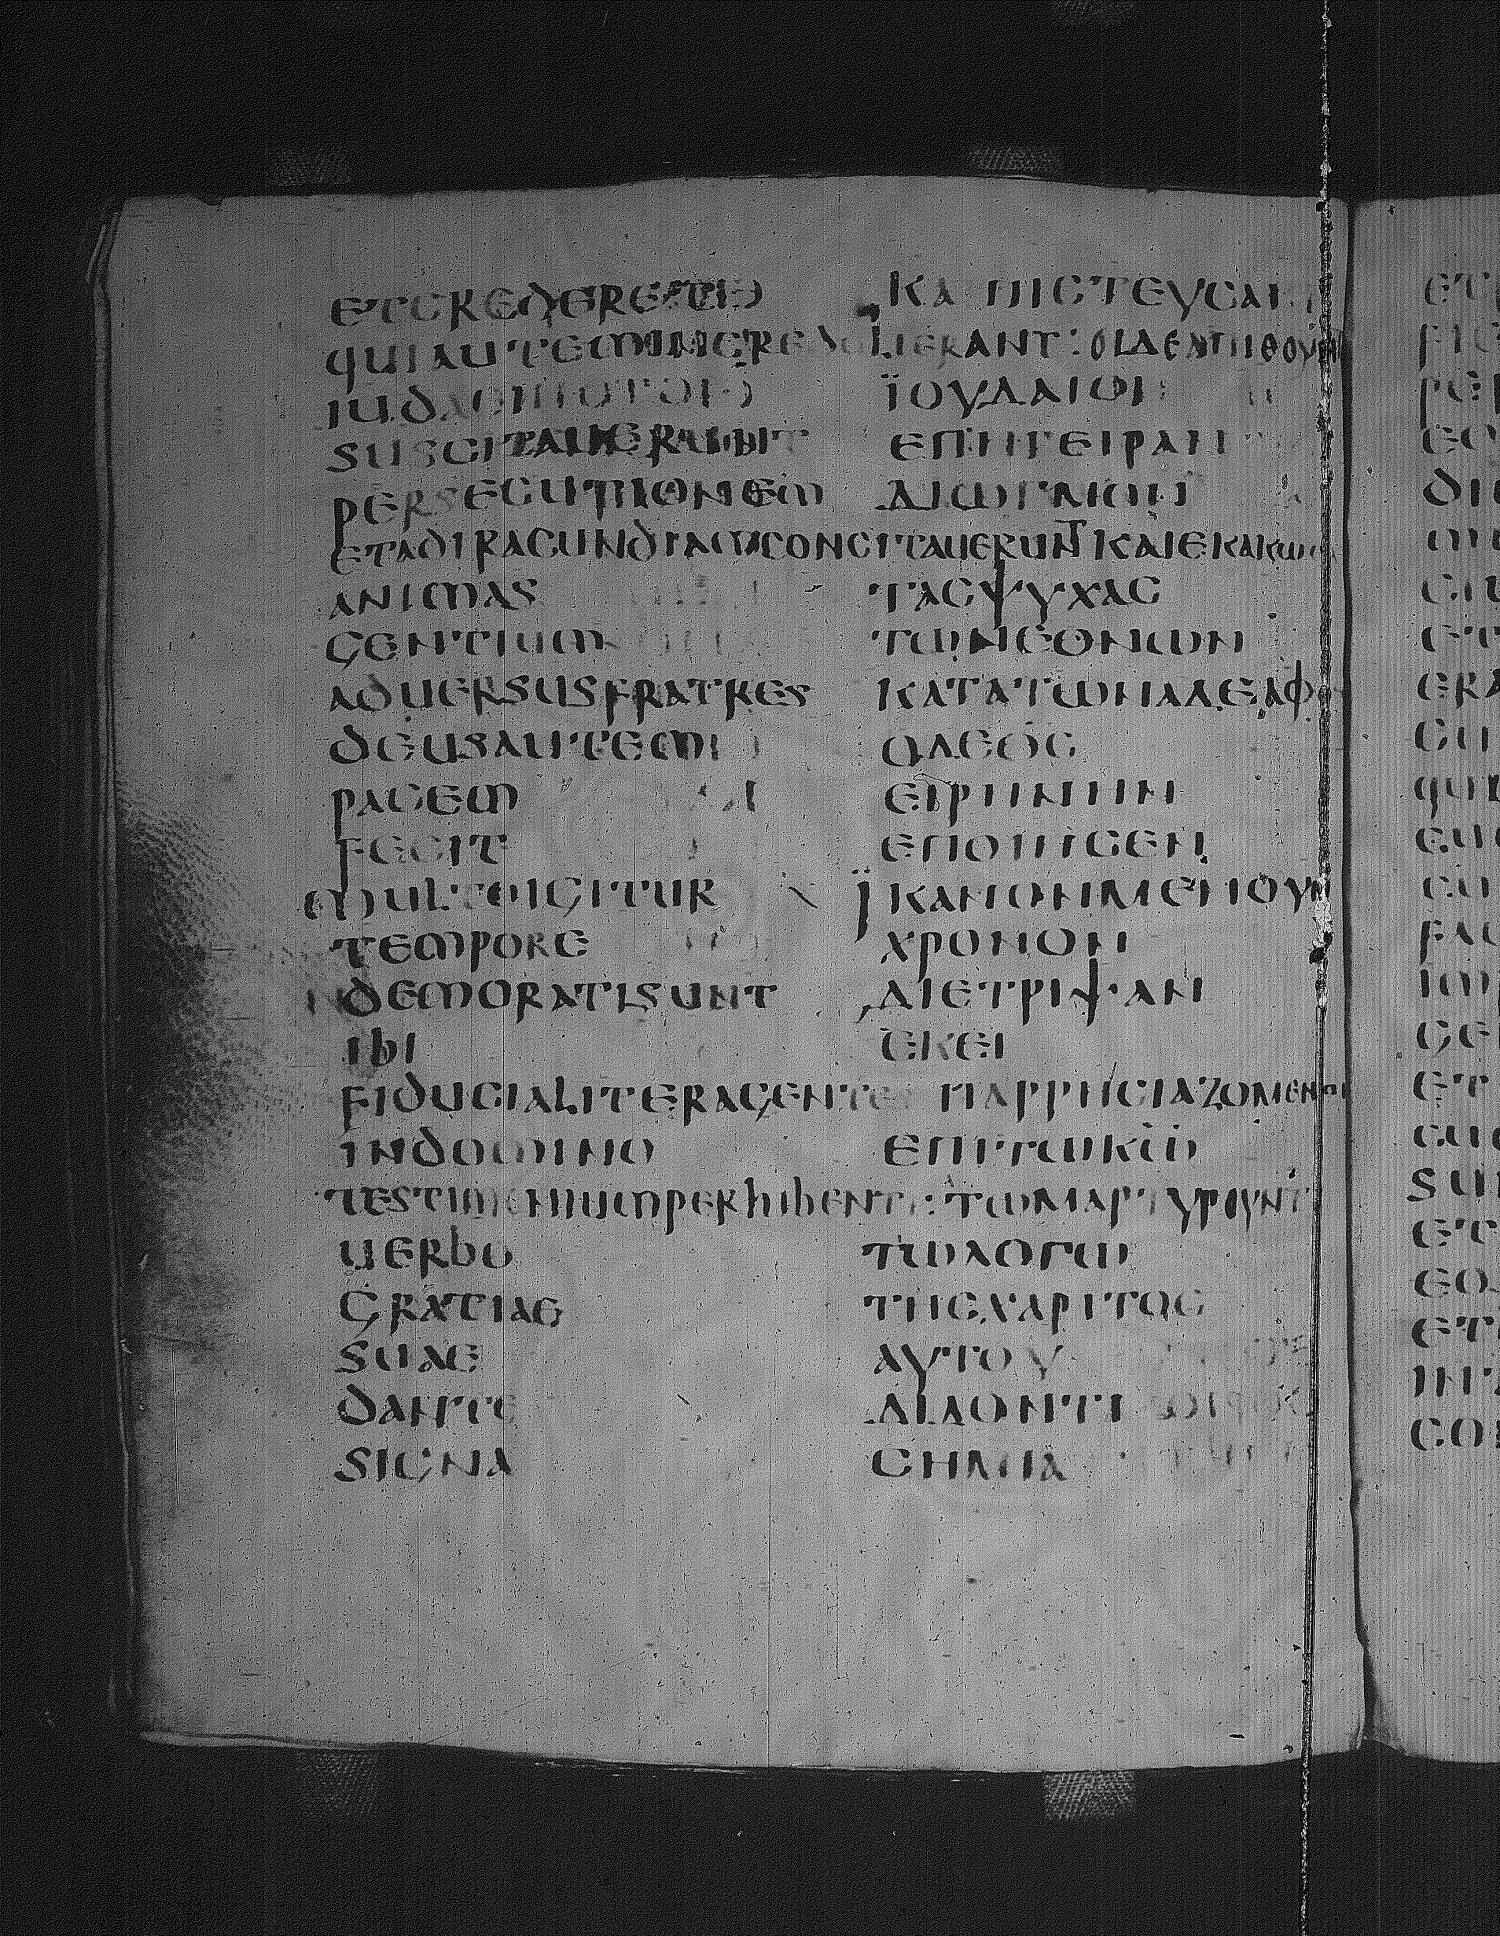 ETCREDERE
QUIAUTEMINCREDULIERANT: ΟΙΔΕΑΠΙΘΟΥΝ
ΚΑ ΠΙCΤΕΥCΑΙ
IUDAEI ΪΟΥΔΑΙΟΙ
SUSCITAUERUNT ΕΠΗΓΕΙΡΑΝ
PERSECUTIONEM ΔΙΩΓΜΟΝ
ETADIRACUNDIAMCONCITAUERUNT ΚΑΙΕΚΑΚΩ
ANIMAS ΤΑCΨΥΧΑC
GENTIUM ΤΩΝΕΘΝΩΝ
ADUERSUSFRATRES ΚΑΤΑΤΩΝΑΔΕΛΦ
DEUSAUTEM ΟΔΕΘC
PACEM ΕΙΡΗΝΗΝ
FECIT ΕΠΟΙΗCΕΝ
MULTOIGITUR ΪΚΑΝΟΝΜΕΝΟΥΝ
TEMPORE ΧΡΟΝΟΝ
DEMORATISUNT ΔΙΕΤΡΙΨΑΝ
IBI ΕΚΕΙ
FIDUCIALITERAGENTES ΠΑΡΡΗCΙΑΖΟΜΕΝΟΙ
INDOMINO ΕΠΙΤΩΚΩ
TESTIMONIUMPERHIBENTI: ΤΩΜΑΡΤΥΡΟΥΝΤ
UERBO ΤΩΛΟΓΩ
GRATIAE ΤΗCΧΑΡΙΤΟC
SUAE ΑΥΤΟΥ
DANTE ΔΙΔΟΝΤΙ
SIGNA CΗΜΙΑ